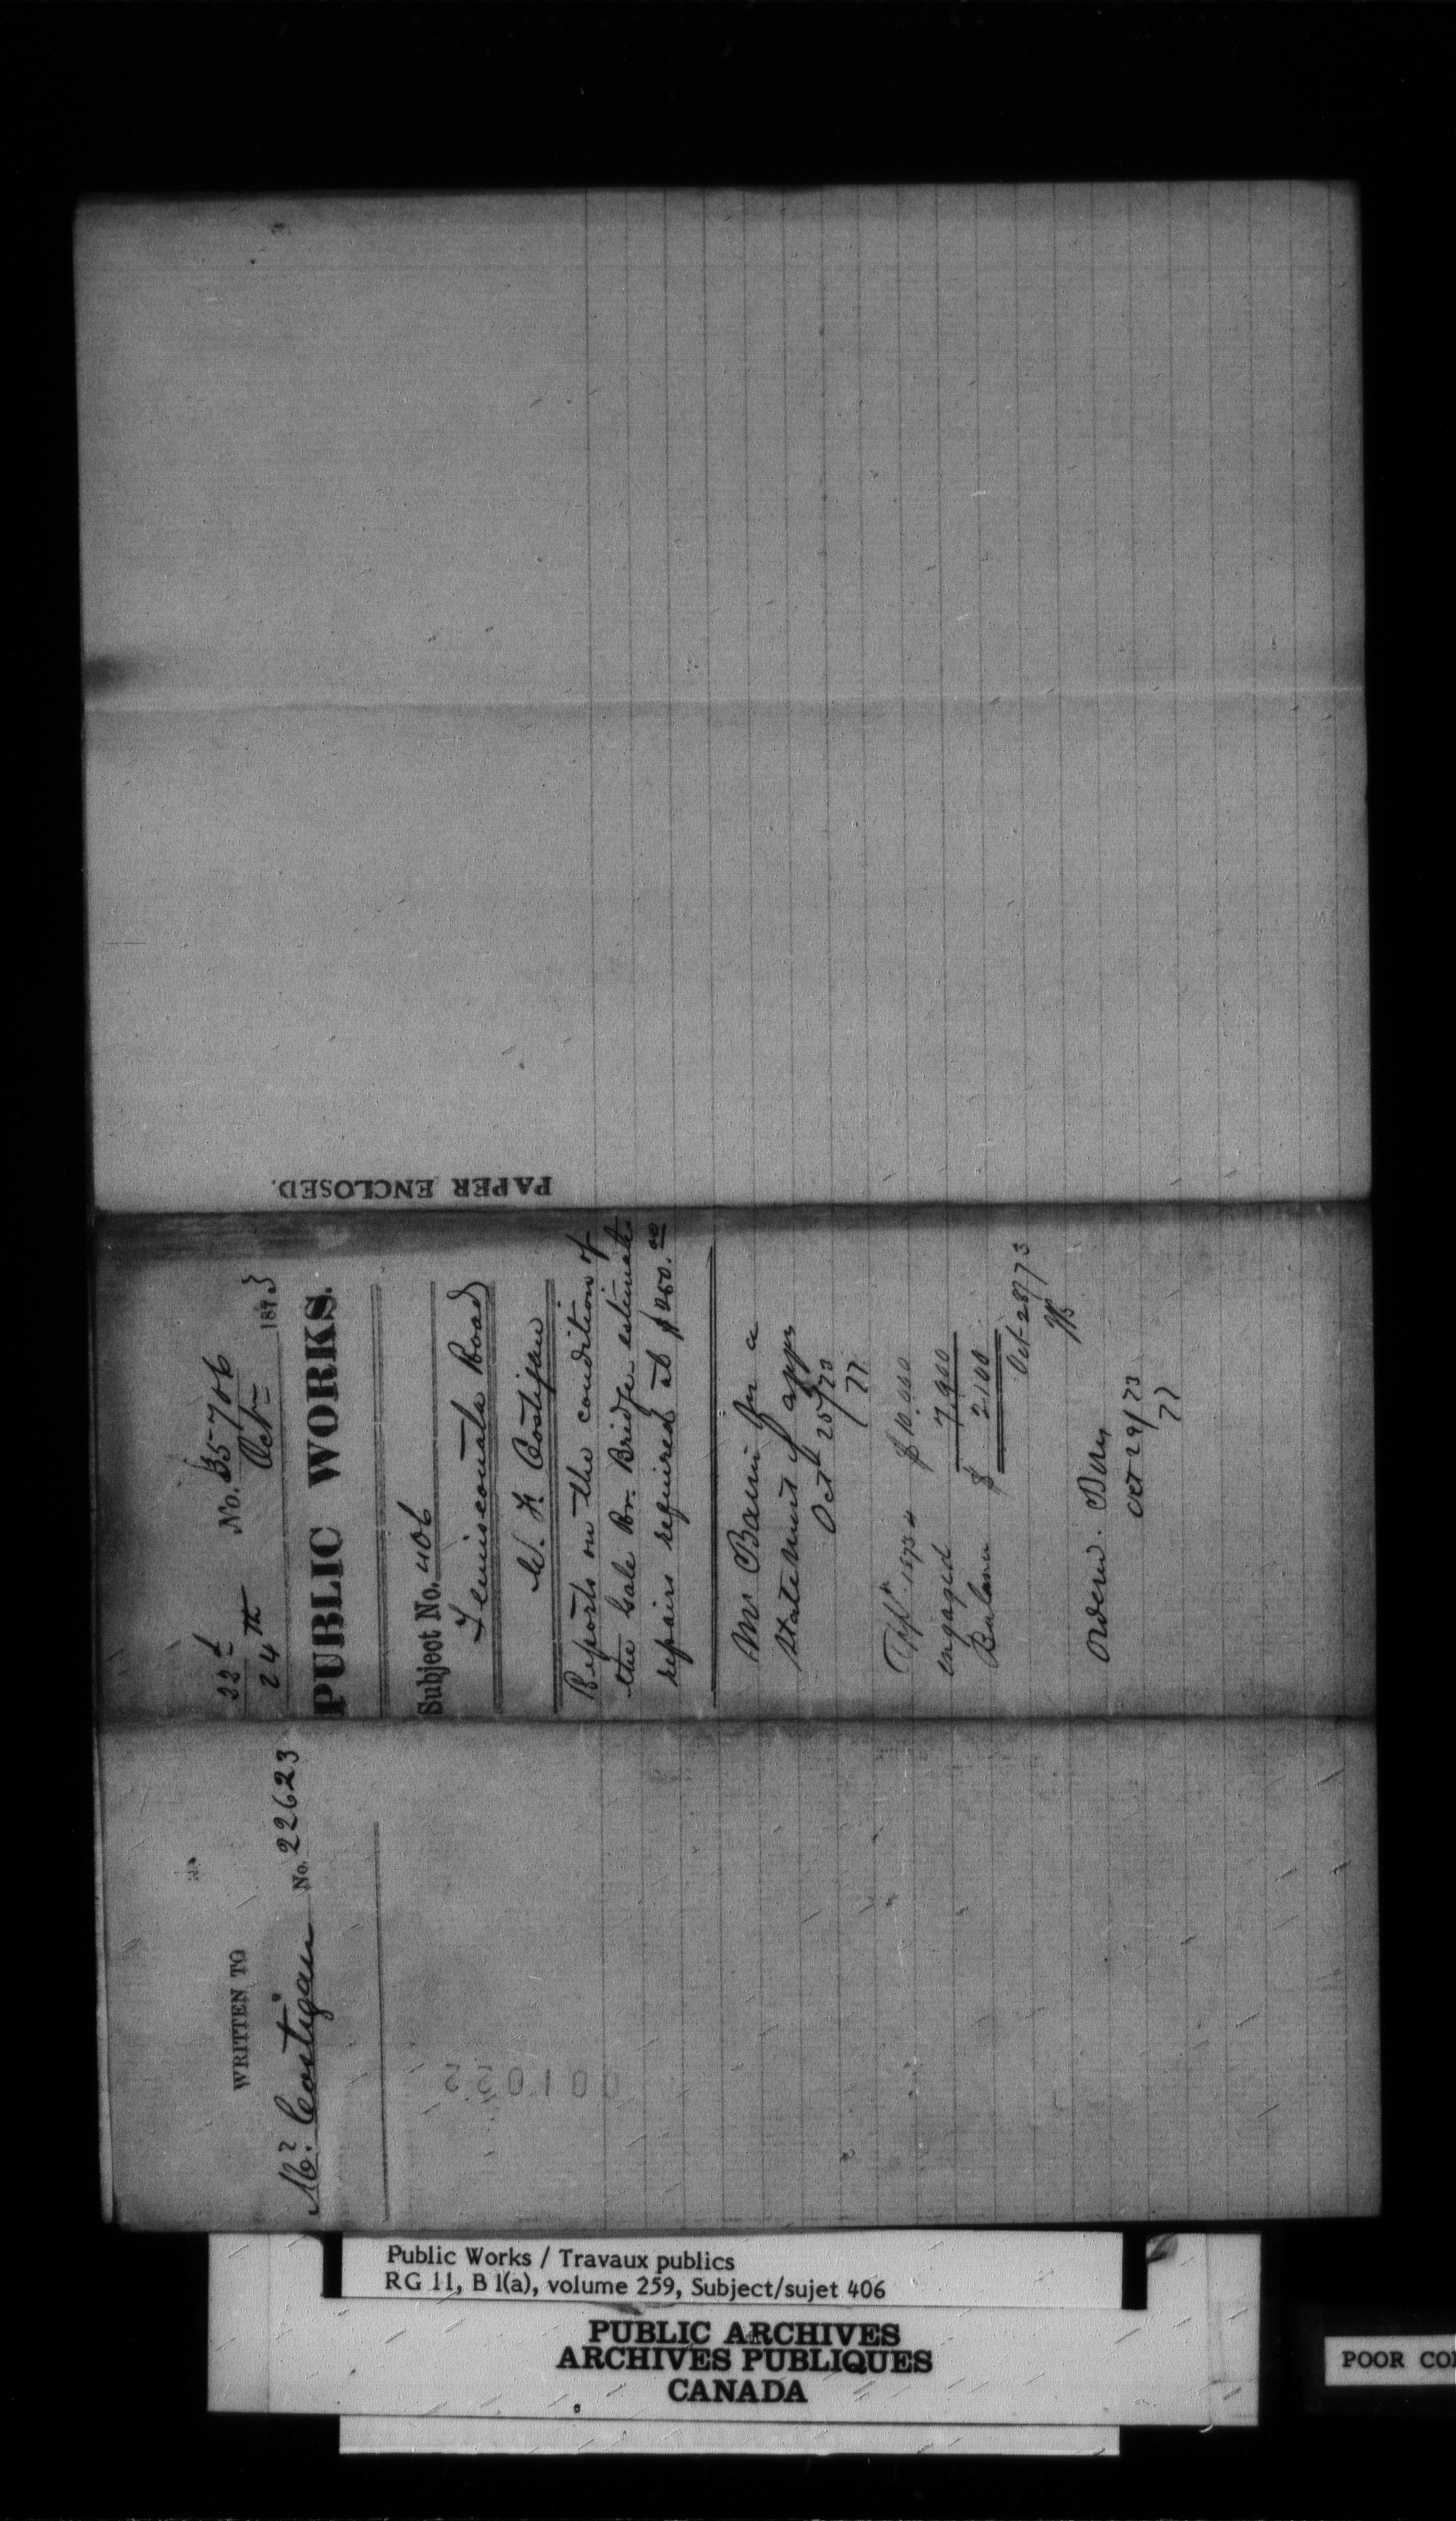 WRITTEN TO
Mr. Costigan No. 22623
001022
22d No. 35706
24th Octr 1873
PUBLIC WORKS.
Subject No. 406
Temiscouata Road
W. F. Costigan
Reports on the condition of
the Gale Br. Bridge estimate
repairs required at $250.00
Mr Bain for a
statement of appn
Oct 25/73
Appn 1873 4 $10.000
engaged 7,900
Balance $ 2100
Oct 28/73
Oct 29/73
PAPER ENCLOSED.
Public Works / Travaux publics
RG 11, B 1(a), volume 259, Subject/sujet 406
PUBLIC ARCHIVES
ARCHIVES PUBLIQUES
CANADA
POOR